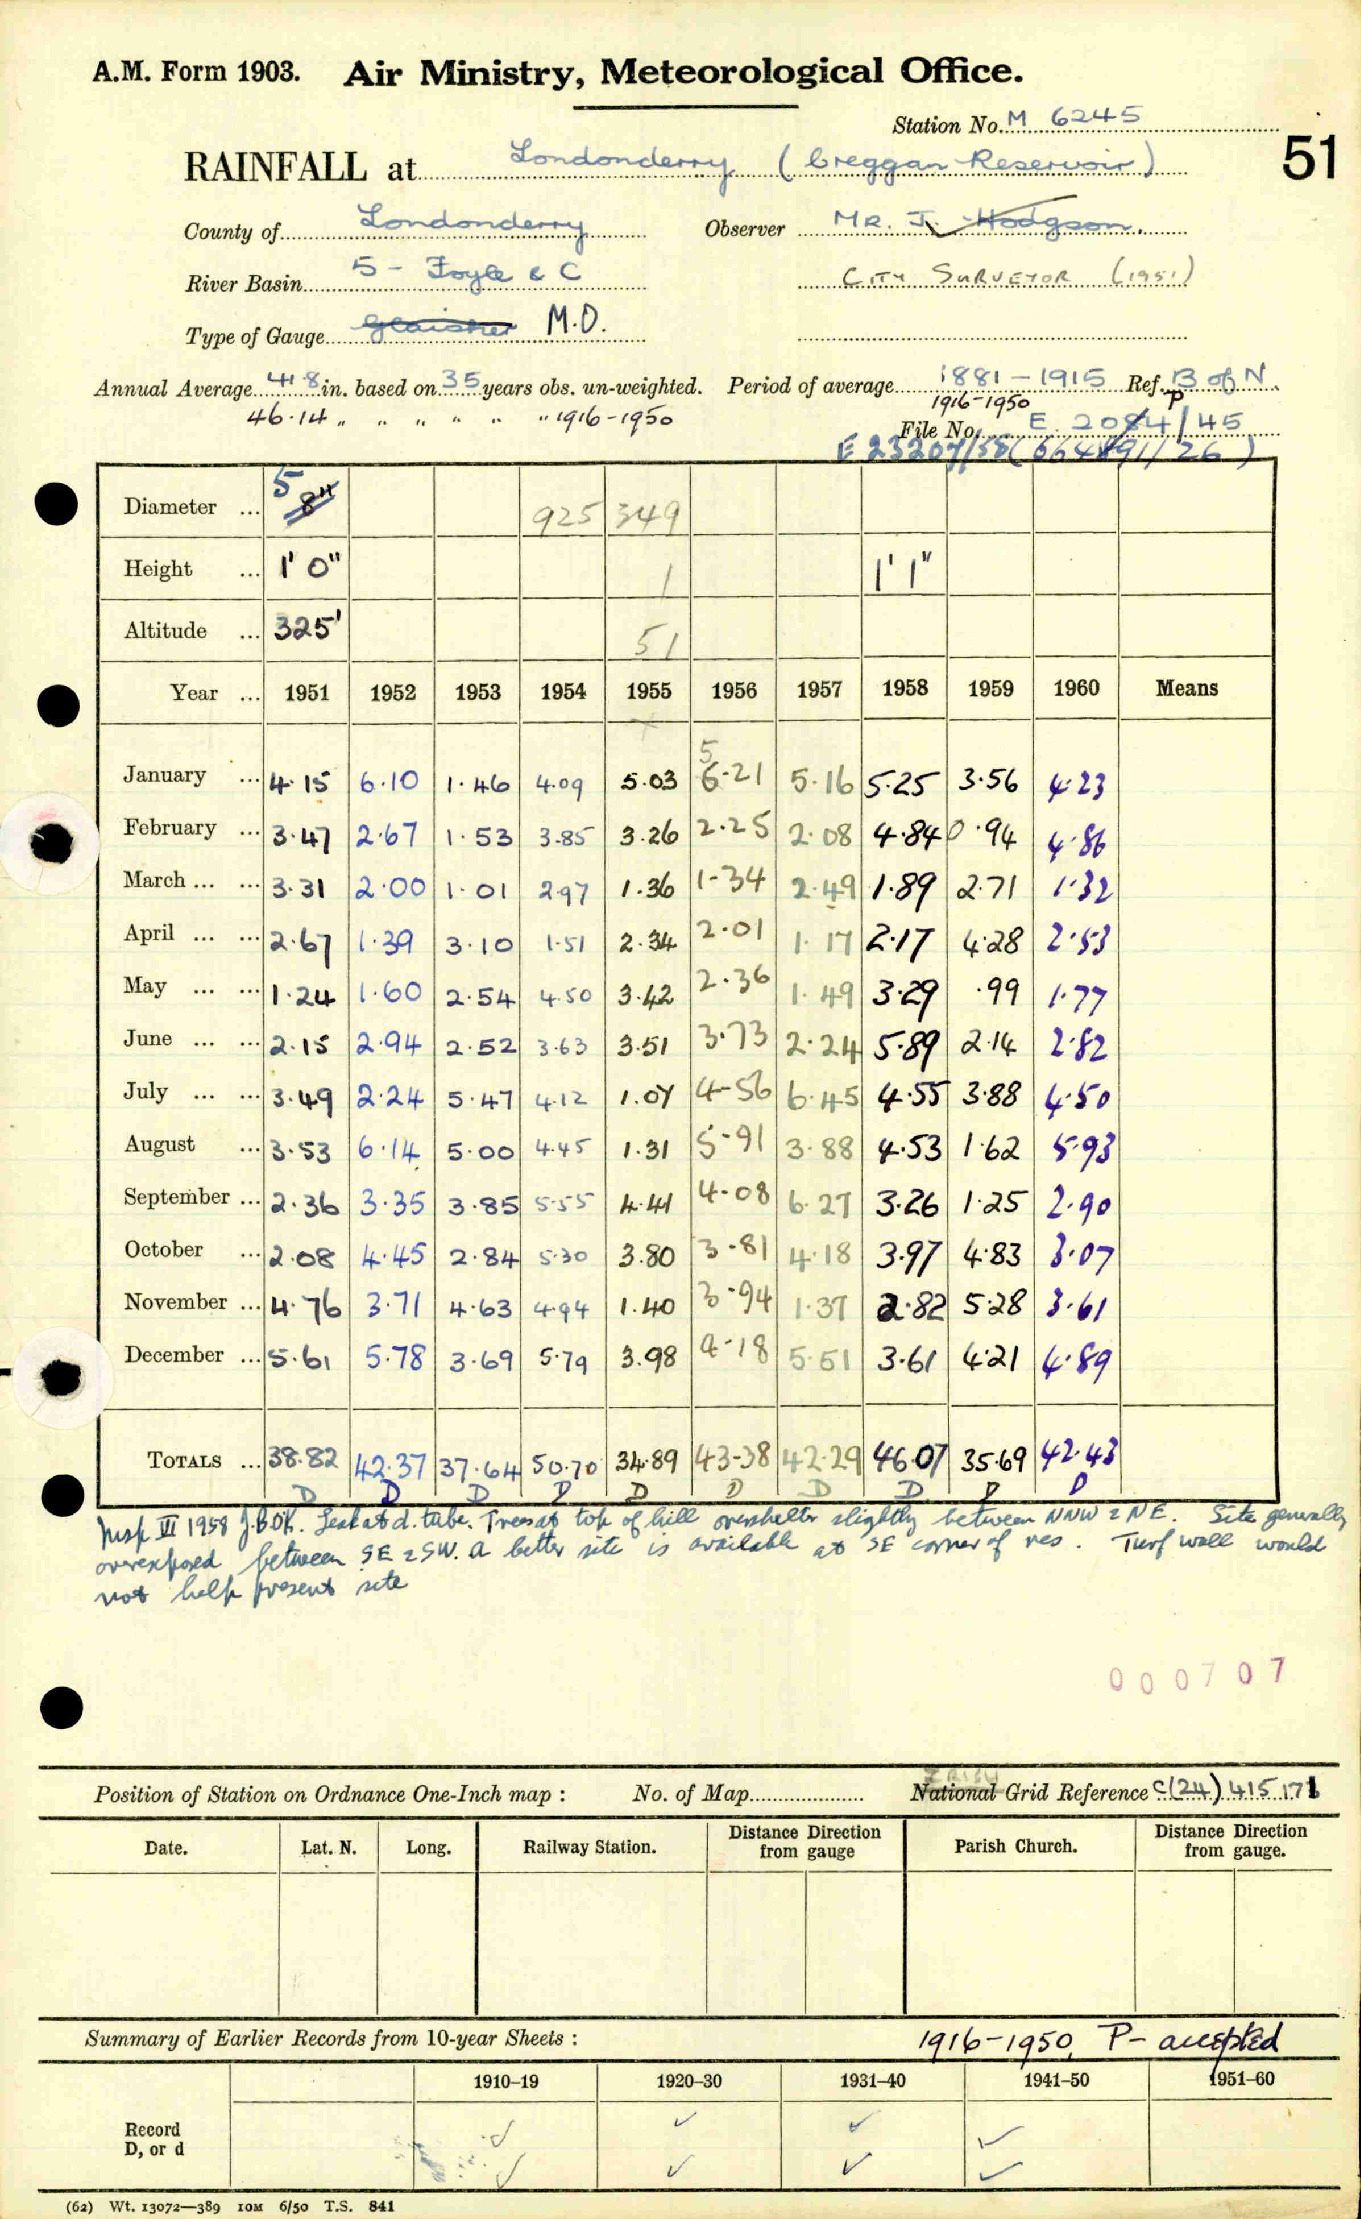 A.M. Form 1903. Air Ministry, Meteorological Office.
Station No. M 6245
51
RAINFALL at Londonderry (Creggan Reservoir)
County of Londonderry Observer Mr. J. Hodgson.
River Basin 5 - Foyle & C City Surveyor (1951)
Type of Gauge Glaisher M.O.
Annual Average 41·8 in. based on 35 years obs. un-weighted. Period of average 1881-1915 Ref. B of N
46·14 " " " " " " 1916-1950 1916-1950 P
File No. E 2084/45
E 23207/58 (664891/26)
Diameter ... 5 8" 925 349
Height ... 1' 0" 1 1' 1"
Altitude ... 325' 51
Year ... 1951 1952 1953 1954 1955 1956 1957 1958 1959 1960 Means
January ... 4·15 6·10 1·46 4·09 5·03 5 6·21 5·16 5·25 3·56 4·23
February ... 3·47 2·67 1·53 3·85 3·26 2·25 2·08 4·84 0·94 4·86
March ... ... 3·31 2·00 1·01 2·97 1·36 1·34 2·49 1·89 2·71 1·32
April ... ... 2·67 1·39 3·10 1·51 2·34 2·01 1·17 2·17 4·28 2·53
May ... ... 1·24 1·60 2·54 4·50 3·42 2·36 1·49 3·29 ·99 1·77
June ... ... 2·15 2·94 2·52 3·63 3·51 3·73 2·24 5·89 2·14 2·82
July ... ... 3·49 2·24 5·47 4·12 1·07 4-56 6·45 4·55 3·88 4·50
August ... 3·53 6·14 5·00 4·45 1·31 5-91 3·88 4·53 1·62 5·93
September ... 2·36 3·35 3·85 5·55 4·41 4-08 6·27 3·26 1·25 2·90
October ... 2·08 4·45 2·84 5·30 3·80 3-81 4·18 3·97 4·83 3·07
November ... 4·76 3·71 4·63 4·94 1·40 3-94 1·37 2·82 5·28 3·61
December ... 5·61 5·78 3·69 5·79 3·98 4-18 5·51 3·61 4·21 4·89
Totals ... 38·82 42·37 37·64 50·70 34·89 43-38 42·29 46·07 35·69 42·43
D D D D D D D D D D
Insp VI 1958 Leak at d. tube. Trees at top of hill overshelter slightly between NNW & NE. Site generally
overexposed between SE & SW. A better site is available at SE corner of res. Turf wall would
not help present site
000707
Position of Station on Ordnance One-Inch map : No. of Map National Irish Grid Reference C(24) 415 171
Date. Lat. N. Long. Railway Station. Distance from gauge Direction Parish Church. Distance from gauge. Direction
Summary of Earlier Records from 10-year Sheets : 1916-1950, P- accepted
1910–19 1920–30 1931–40 1941–50 1951–60
Record ✓ ✓ ✓ ✓
D, or d ✓ ✓ ✓ ✓
(62) Wt. 13072—389 10M 6/50 T.S. 841